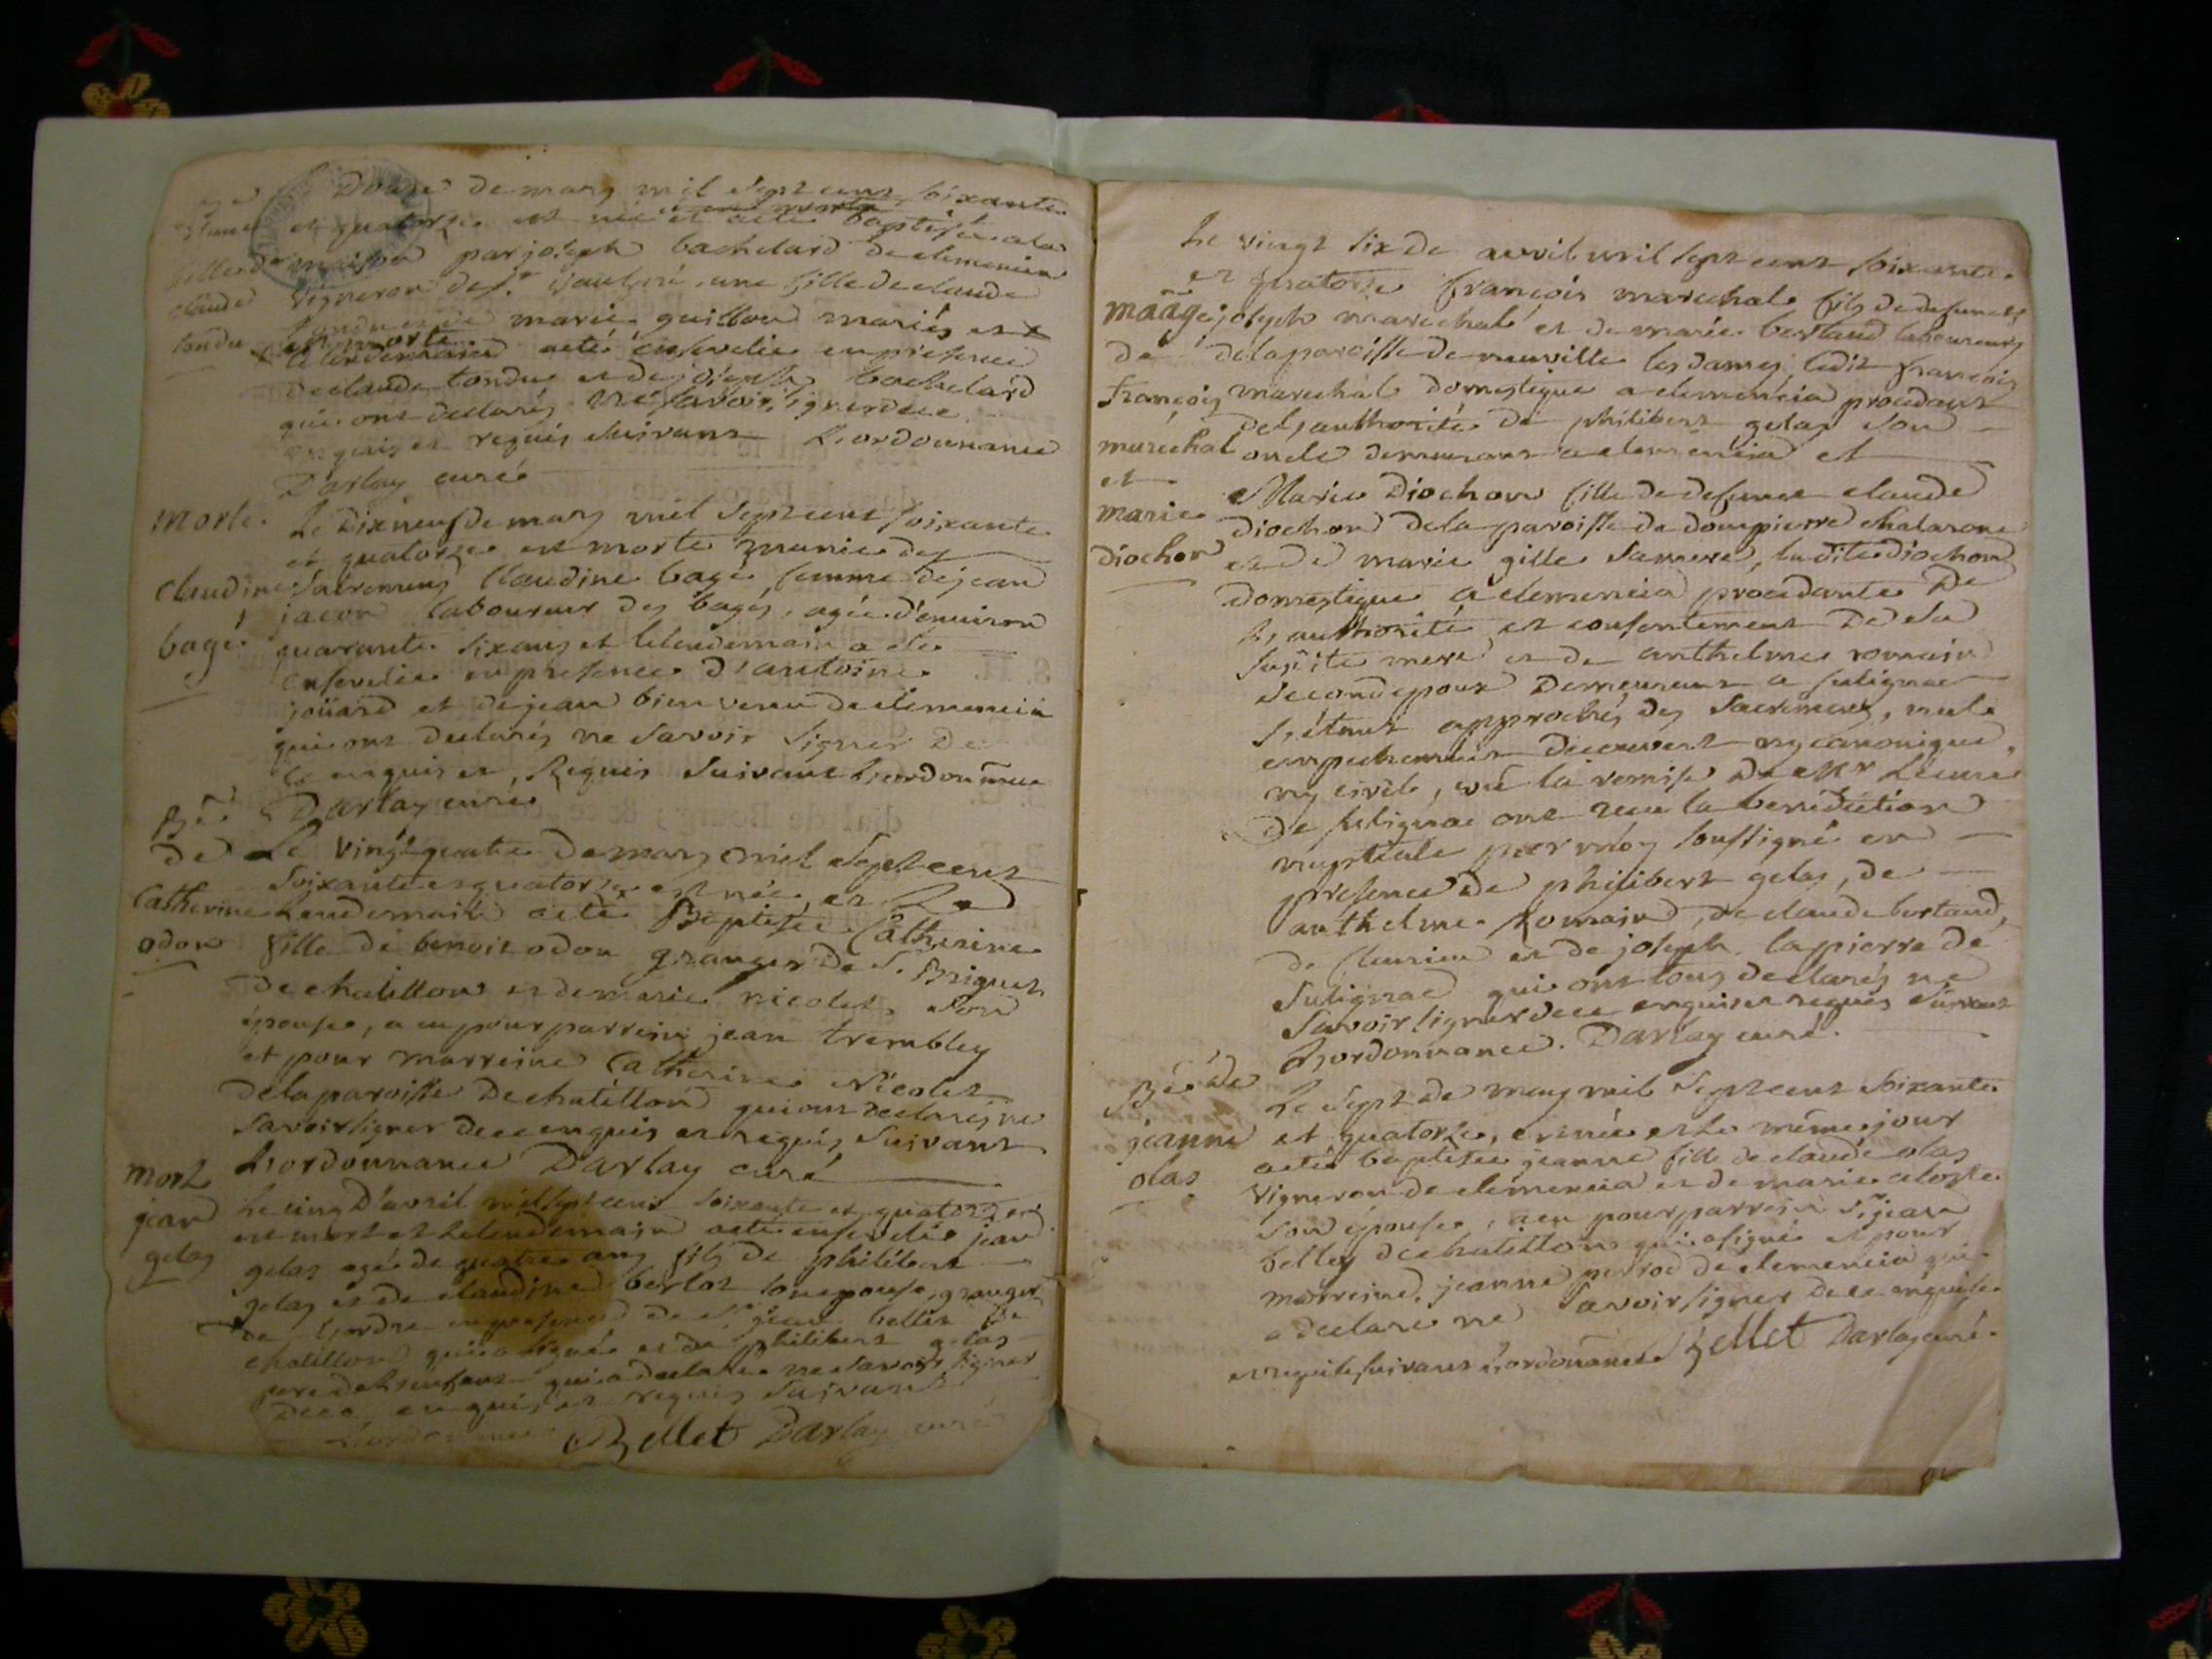 Douze de mars mil sept cent soixante
et quatorze est née et a eté baptisée a la
fille de maison par joseph bachelard de clemencia
claude vigneron de une fille de claude
tondu tondu et de marie guillon mariés et
est morte
le lendemain a eté ensevelie en presence
de claude tondu et de joseph bachelard
qui ont declarés ne savoir signer de ce
enquis et requis suivant l'ordonnance
Darlay curé
morte Le dix neuf de mars mil sept cent soixante
et quatorze est morte munie des
claudine sacremens Claudine bagé femme de jean
jacon laboureur des bagés, agée d'environ
bagé quarante six ans et le lendemain a eté
ensevelie en presence d'antoine
joüard et de jean bien venu de clemencia
qui ont declarés ne savoir signer de
ce enquis et Requis suivant l'ordonnance
Darlay curé
Bê
de Le vingt quatre de mars mil sept cent
soixante et quatorze est née, et le
Catherine Lendemain a eté Baptisée Catherine
odon fille de benoit odon granger de
de chatillon et de marie nicolet son
épouse, a eu pour parrein jean trembley
et pour marreine Catherine Nicolet
de la paroisse de chatillon qui ont declarés ne
savoir signer de ce enquis et requis suivant
l'ordonnance Darlay curé
mort
jean Le cinq d'avril mil sept cent soixante et quatorze
est mort et le lendemain a eté enseveli jean
gelas gelas agé de quatre ans fils de philibert
gelas et de claudine berlot son epouse, granger
de en presence de Sr jean bellet de
chatillon qui a signé et de philibert gelas
pere de l'enfant qui a declaré ne savoir signer
de ce enquis et requis suivant
l'ordonnance Bellet Darlay curé
Le vingt six de avril mil sept cent soixante
et quatorze françois marechal fils de defunct
mãage joseph marechal et de marie bertaud laboureurs
de de la paroisse de neuville les dames, ledit françois
françois marechal domestique a clemencia procedant
de l'authorité de philibert gelas son
marechal oncle demeurant a clemencia et
et Marie Diochon fille de defunct claude
marie diochon de la paroisse de dompierre chalarone
diochon et de marie gille sa mere, la dite diochon
domestique a clemencia procedante de
l'authorité et consentement de sa
susdite mere et de anthelme romain
second epoux demeurant a sulignac
s'étant approchés des sacremens, nul
empechement decouvert ny canonique,
ny civil, vû la remise de Mr Le curé
de sulignac ont reçu la benediction
nuptiale par moy soussigné en
presence de philibert gelas, de
anthelme Romain, de claude bertaud,
de et de joseph lapierre de
Sulignac qui ont tous declarés ne
savoir signer de ce enquis et requis suivant
l'ordonnance. Darlay curé.
Bê de Le sept de may mil sept cent soixante
jeanne et quatorze, est née et le même jour
a eté baptisée jeanne fille de claude olas
olas vigneron de clemencia et de marie
son épouse, a eu pour parrein Sr jean
bellet de chatillon qui a signé et pour
marreine jeanne perrod de clemencia qui
a declaré ne savoir signer de ce enquise
et requise suivant l'ordonnance Bellet Darlay curé.